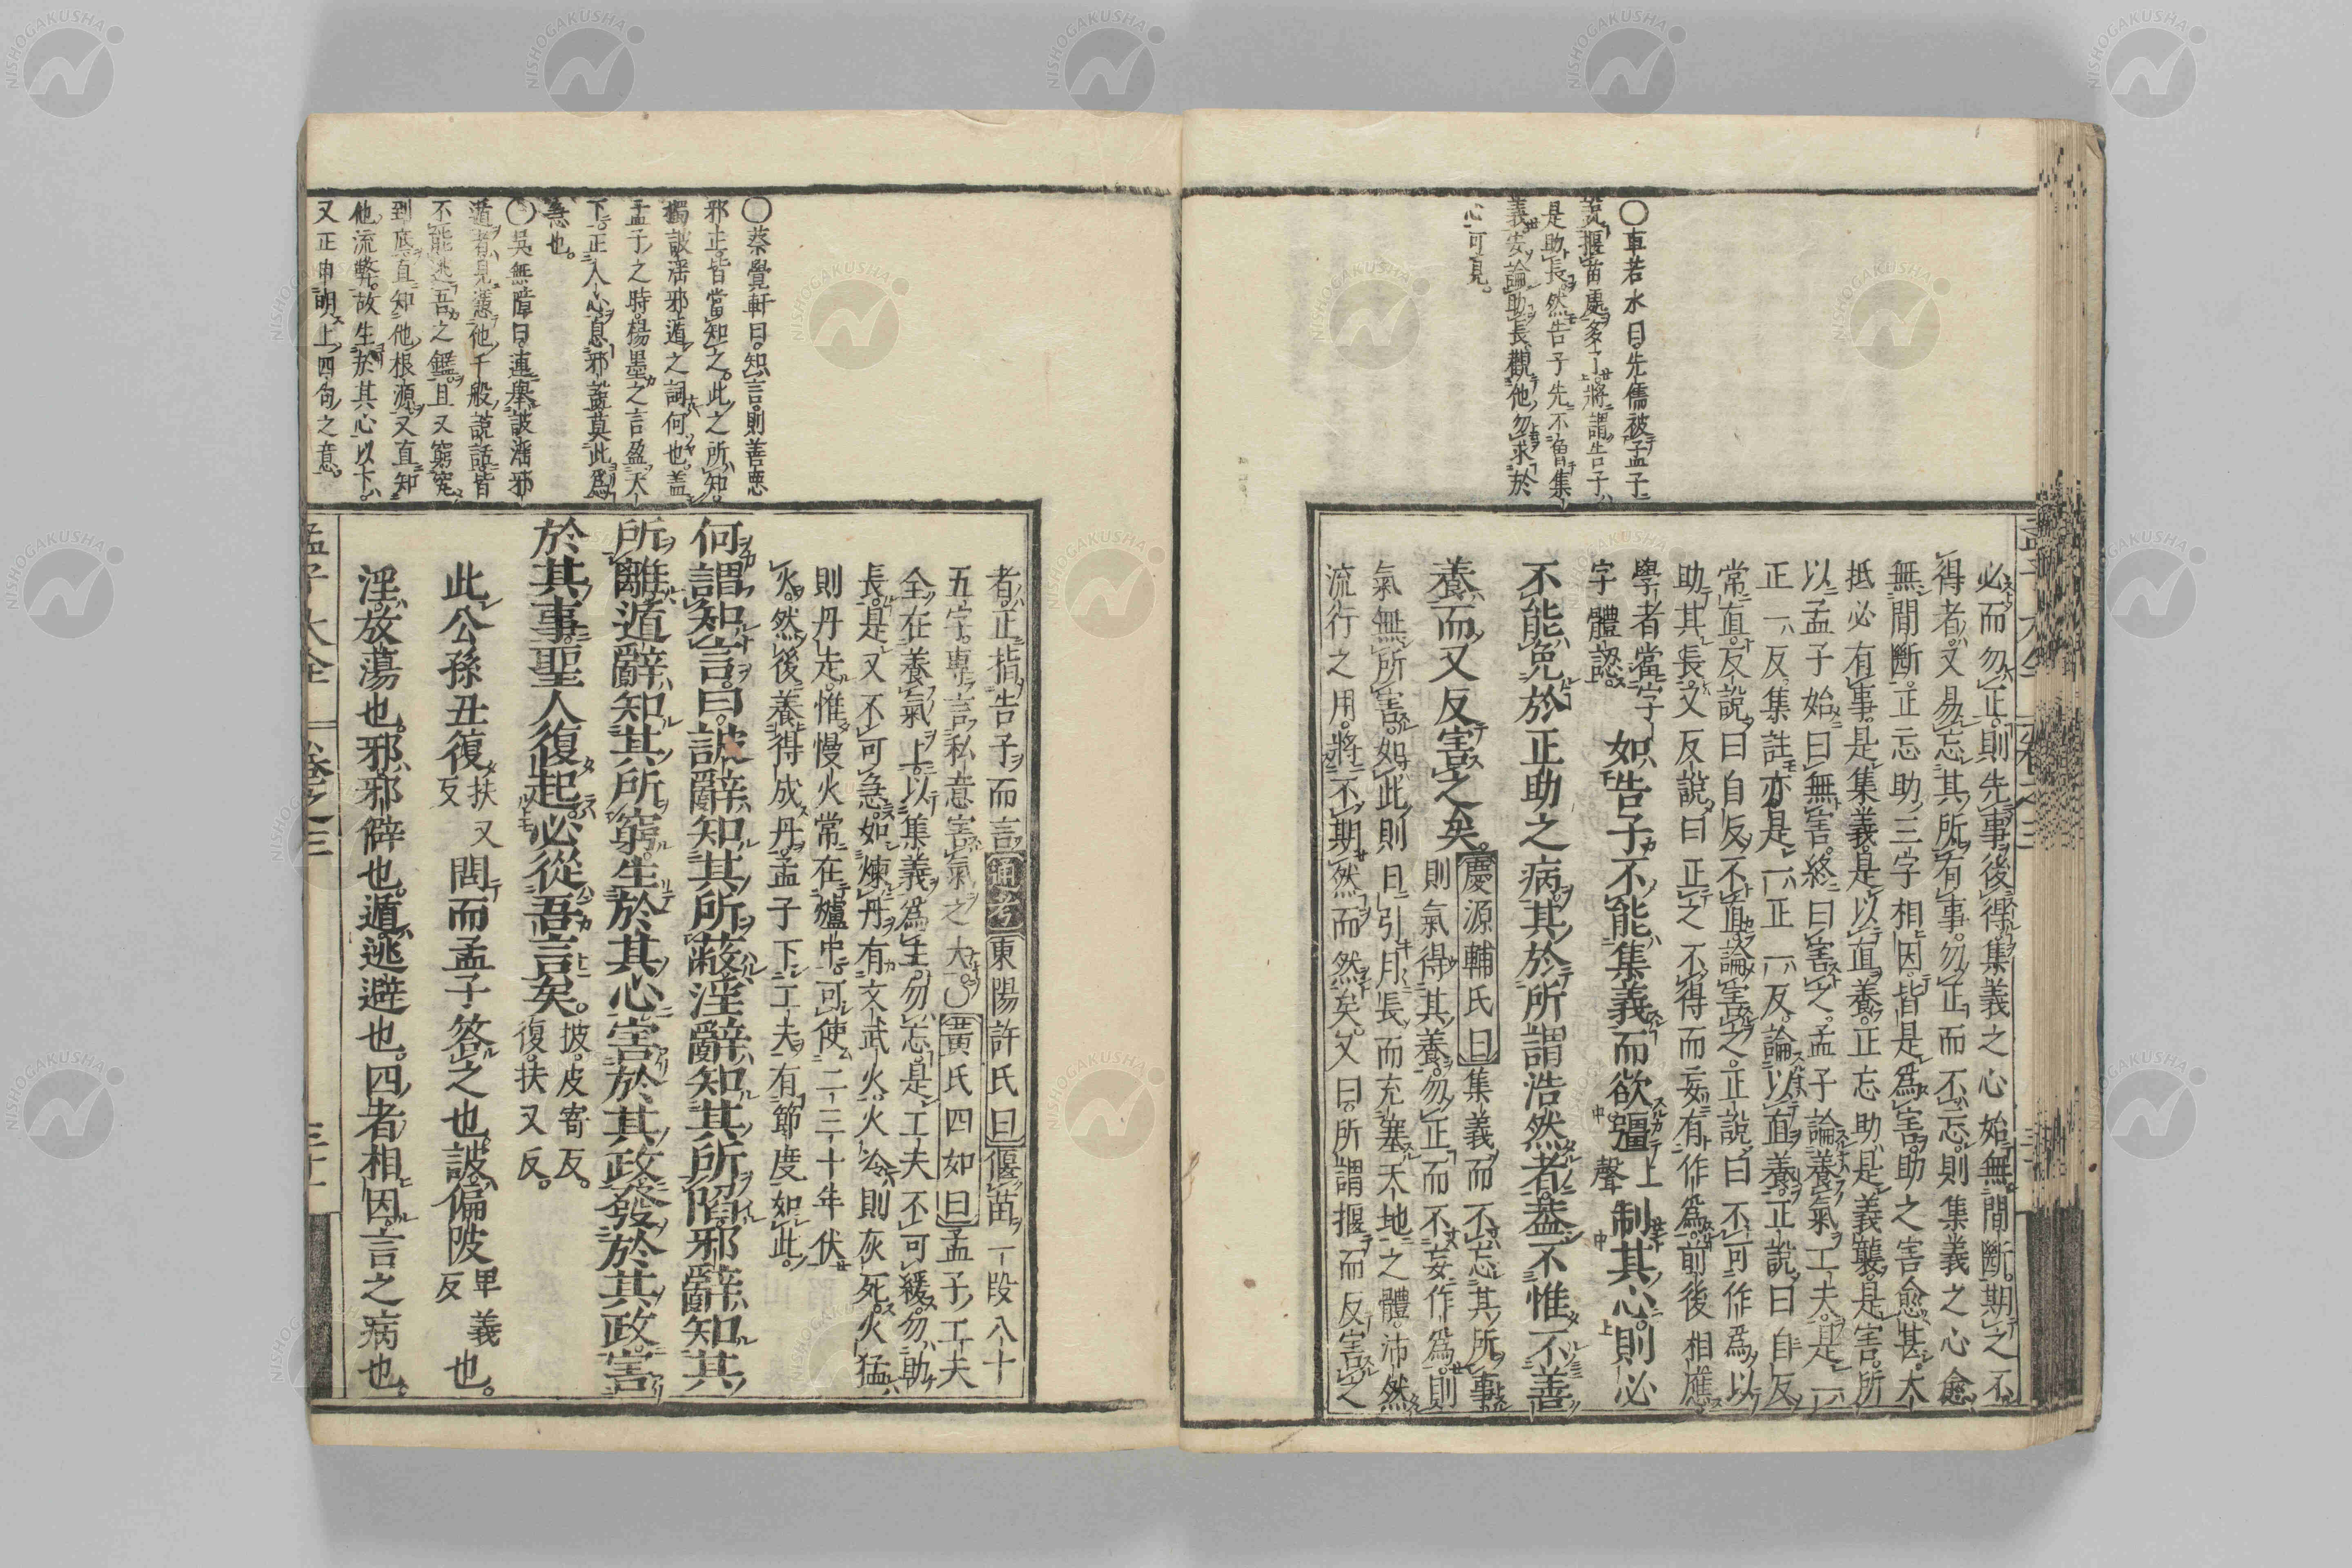 〇車若水曰。先儒被孟子
說揠苗處多了。將謂告子
是助長。然告子先不魯集
義。安論助長。觀他勿求於
心可見。
必而勿正。則先事後得。集義之心始無間斷。期之不
得者。又易忘其所有事。勿正而不忘。則集義之心愈
無間斷。正忘助三字相因。皆是爲害。助之害愈甚。大
抵必有事。是集義。是以直養。正忘助。是義襲。是害。所
以孟子始曰無害。終曰害之。孟子論養氣工夫。是一
正一反。集註亦是一正一反。論以直養。正說曰自反
常直。反說曰自反不直。論害之。正說曰不可作爲以
助其長。又反說曰正之不得而妄有作爲。前後相應。
學者當字
字體認。
如告子不能集義而欲彊上聲制其心。則必
不能免於正助之病。其於所謂浩然者。蓋不惟不善
養。而又反害之矣。慶源輔氏曰集義而不忘其所事
則氣得其養。勿正而不妄作爲。則
氣無所害。如此則日引月長而充塞天地之體。沛然
流行之用。將不期然而然矣。又曰。所謂揠而反害之
〇蔡覺軒曰。知言。則善惡
邪正。皆當知之。此之所知。
獨詖淫邪遁之詞何也。蓋
孟子之時。楊墨之言盈天
下。正人心息邪說。莫此爲
急也。
〇吳無障曰。連舉詖淫邪
遁者。見憑他千般說話。皆
不能逃吾之鑑。且又窮究
到底。直知他根源。又直知
他流弊。故生於其心以下。
又正申明上四句之意。
者。正指告子而言通考東陽許氏曰偃苗一段八十
五字。專言私意害氣之大。黃氏四如曰孟子工夫
全在養氣上。以集義爲主。勿忘。是工夫不可緩。勿助
長。是又不可急。如煉丹有文武火。火冷則灰死。火猛
則丹走。惟慢火常在爐中。可使二三十年伏
火。然後養得成丹。孟子下工夫有節度如此。
何謂知言。曰。詖辭知其所蔽。淫辭知其所陷。邪辭知其
所離。遁辭知其所窮。生於其心。害於其政。發於其政。害
於其事。聖人復起。必從吾言矣。披。皮寄反。
復。扶又反。
此公孫丑復扶又反問而孟子答之也。詖。偏陂卑義反也。
淫。放蕩也。邪。邪僻也。遁。逃避也。四者相因。言之病也。
孟子大全 卷之三